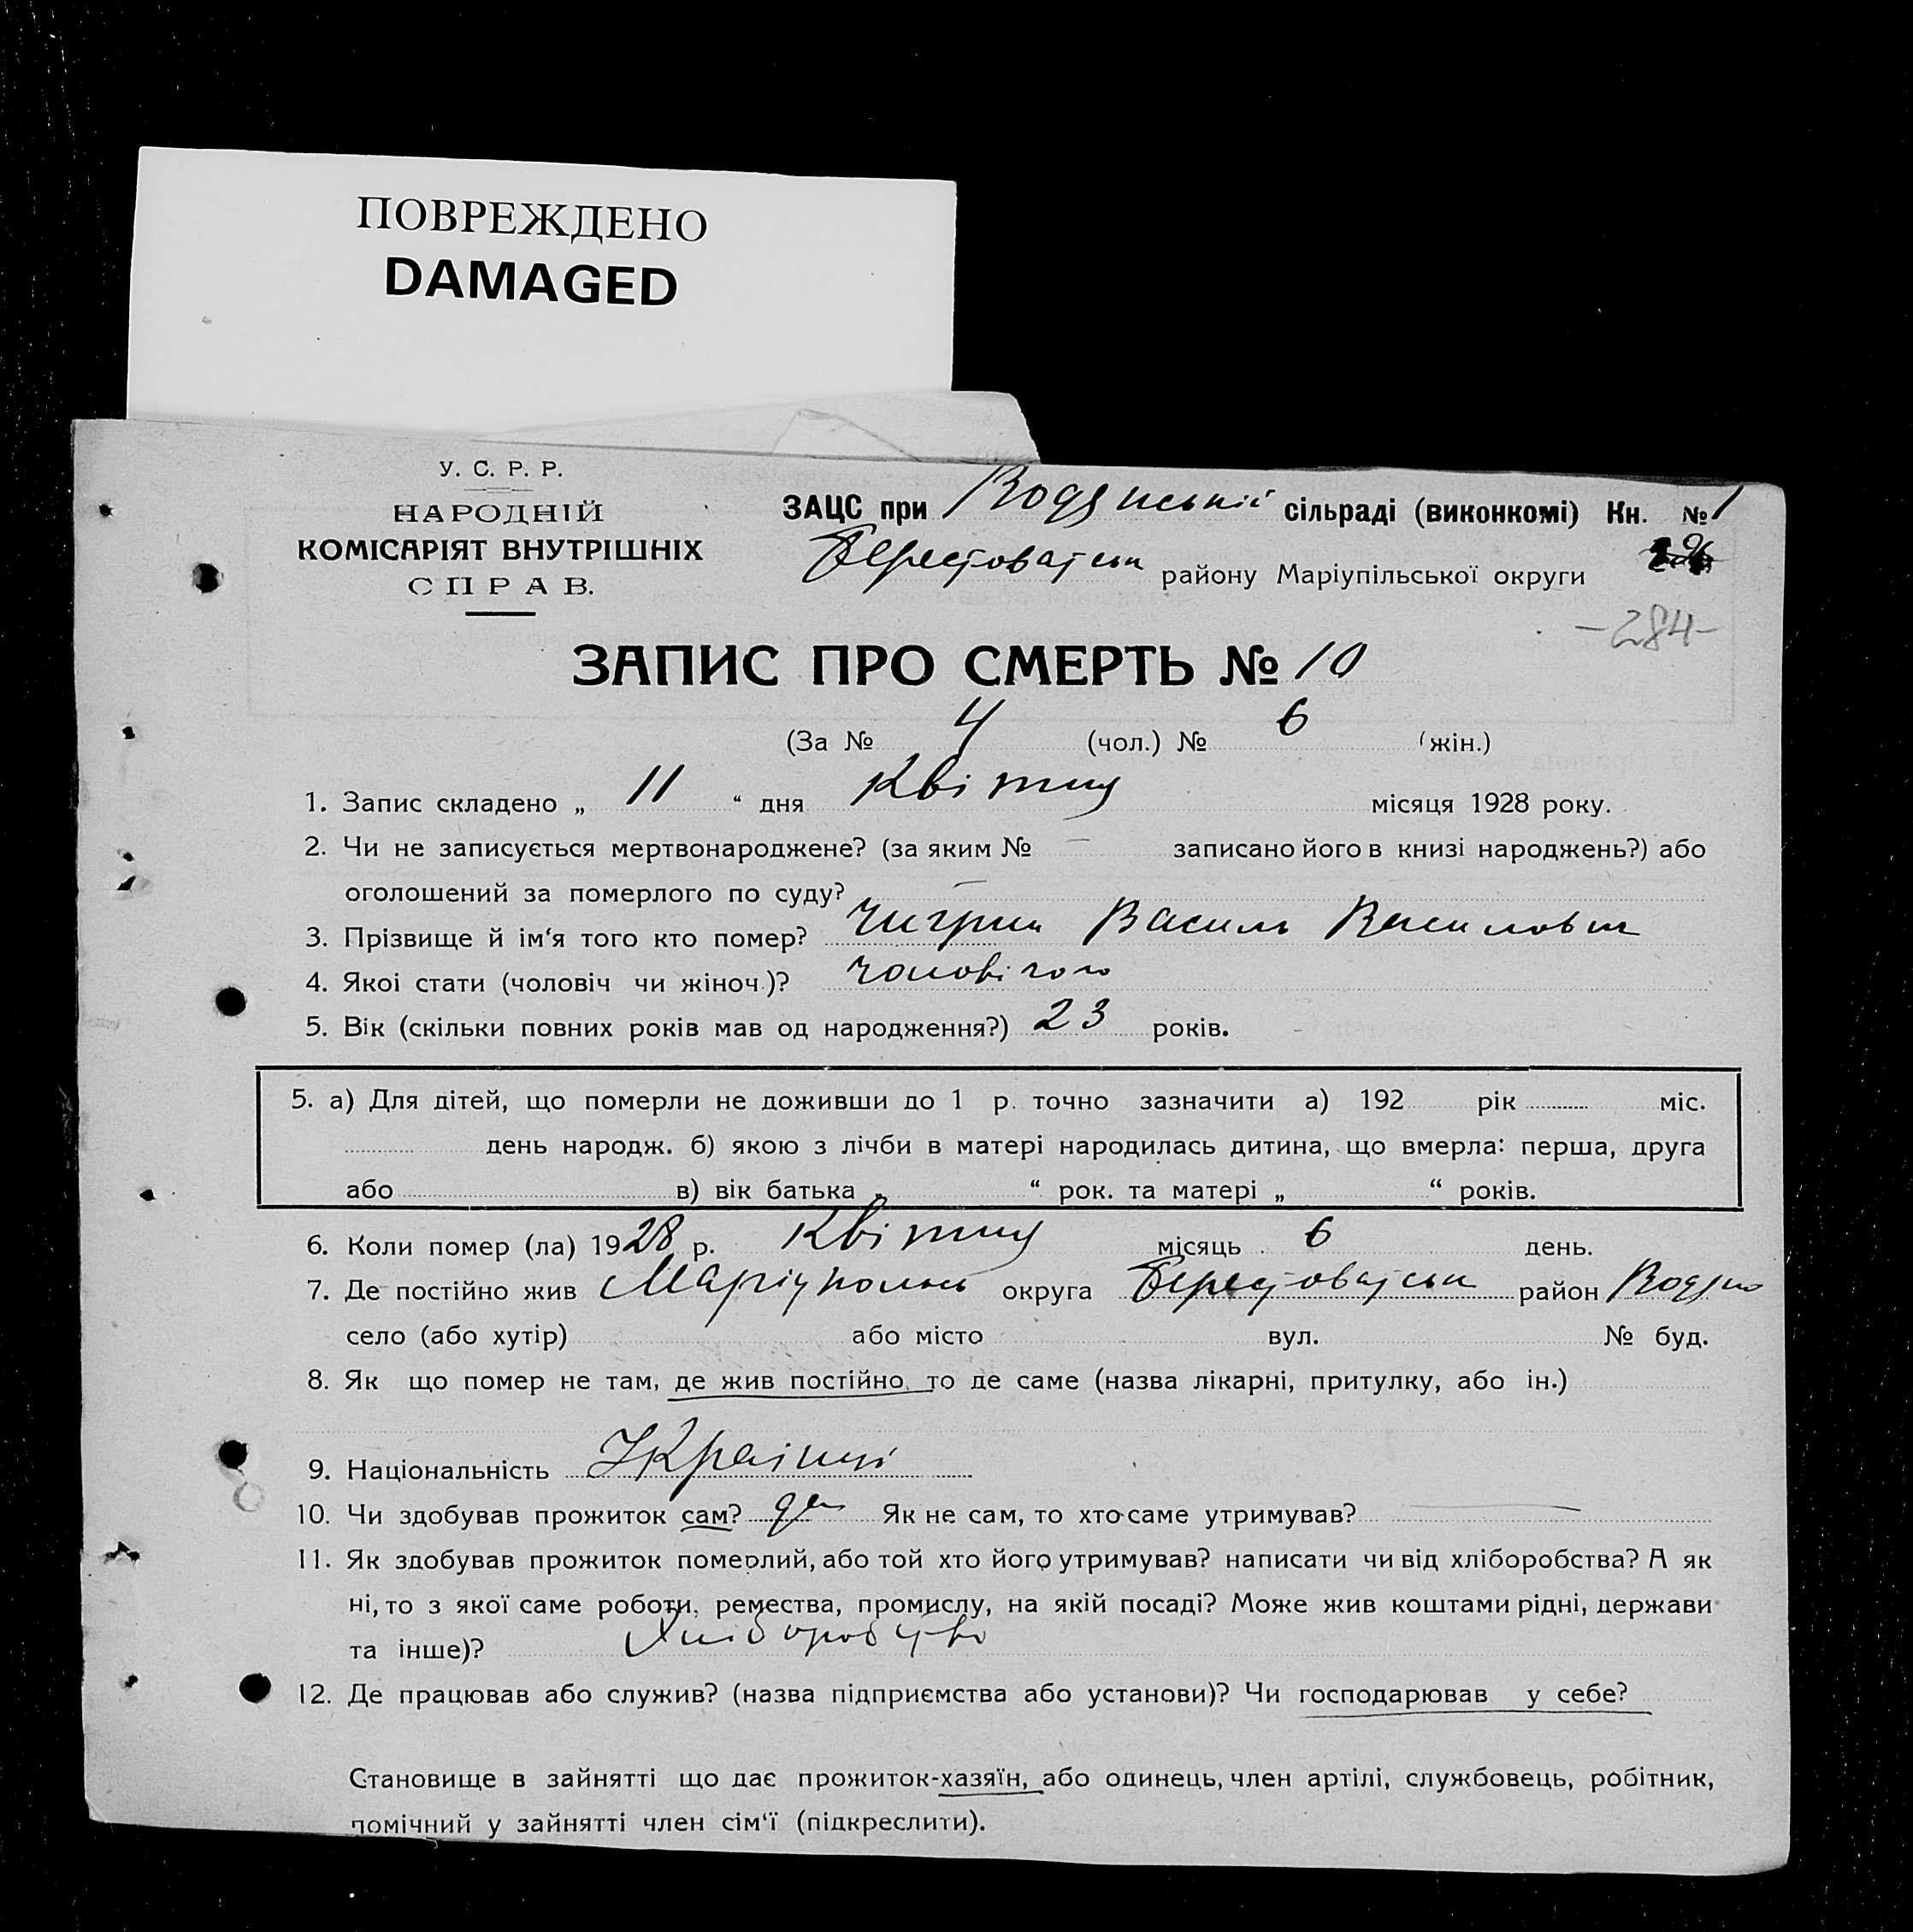 ПОВРЕЖДЕНО
DAMAGED
У. С. Р. Р.
НАРОДНІЙ
КОМІСАРІЯТ ВНУТРІШНІХ
СПРАВ.
ЗАЦС при Водянській сільраді (виконкомі) Кн. № 1
Берестоватськ району Маріупільської округи
-284-
ЗАПИС ПРО СМЕРТЬ № 10
(За № 4 (чол.) № 6 (жін.)
1. Запис складено „ 11 “ дня Квітня місяця 1928 року.
2. Чи не записується мертвонароджене? (за яким № — записано його в книзі народжень?) або
оголошений за померлого по суду? —
3. Прізвище й ім‘я того кто помер? Чигрин Василь Василович
4. Якоі стати (чоловіч чи жіноч.)? чоловічого
5. Вік (скільки повних років мав од народження?) 23 років.
5. а) Для дітей, що померли не доживши до 1 р. точно зазначити а) 192 рік міс.
день народж. б) якою з лічби в матері народилась дитина, що вмерла: перша, друга
або в) вік батька „ “ рок. та матері „ “ років.
6. Коли помер (ла) 1928 р. Квітня місяць 6 день.
7. Де постійно жив Маріупольськ округа Берестоватськ район Водяно
село (або хутір) або місто вул. № буд.
8. Як що помер не там, де жив постійно, то де саме (назва лікарні, притулку, або ін.)
9. Національність
10. Чи здобував прожиток сам? да Як не сам, то хто саме утримував? —
11. Як здобував прожиток померлий, або той хто його утримував? написати чи від хліборобства? А як
ні, то з якої саме роботи, ремества, промислу, на якій посаді? Може жив коштами рідні, держави
та інше)? Хліборобство
12. Де працював або служив? (назва підприємства або установи)? Чи господарював у себе?
Становище в зайнятті що дає прожиток-хазяїн, або одинець, член артілі, службовець, робітник,
помічний у зайнятті член сім‘ї (підкреслити).